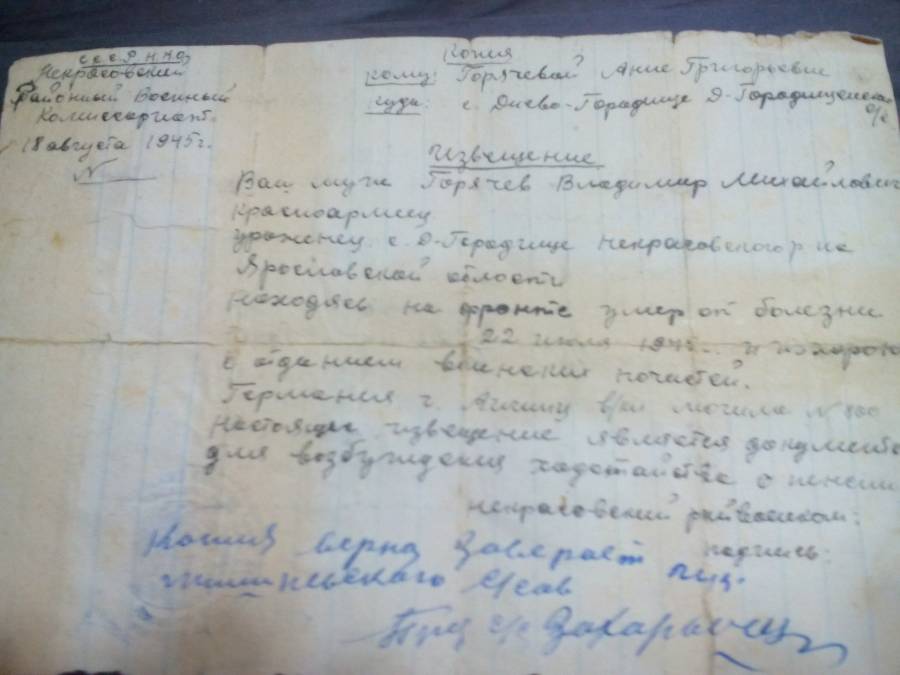 С.С.С.Р. Н.К.О.
Некрасовский
Районный Военный
Комиссариат
18 августа 1945 г.
N
Копия
кому: Горячевой Анне Григорьевне
куда: с. Диево-Городище Д-Городищенский с/с
Извещение
Ваш муж Горячев Владимир Михайлович
красноармеец
уроженец с. Д-Городище Некрасовского р-на
Ярославской области
находясь на фронте умер от болезни
22 июля и похоронен
с отданием воинских почестей.
Германия г. могила N
Настоящее извещение является документом
для возбуждения ходатайства о пенсии
Некрасовский райвоенком:
подпись:
Копия верна
Пред с/с